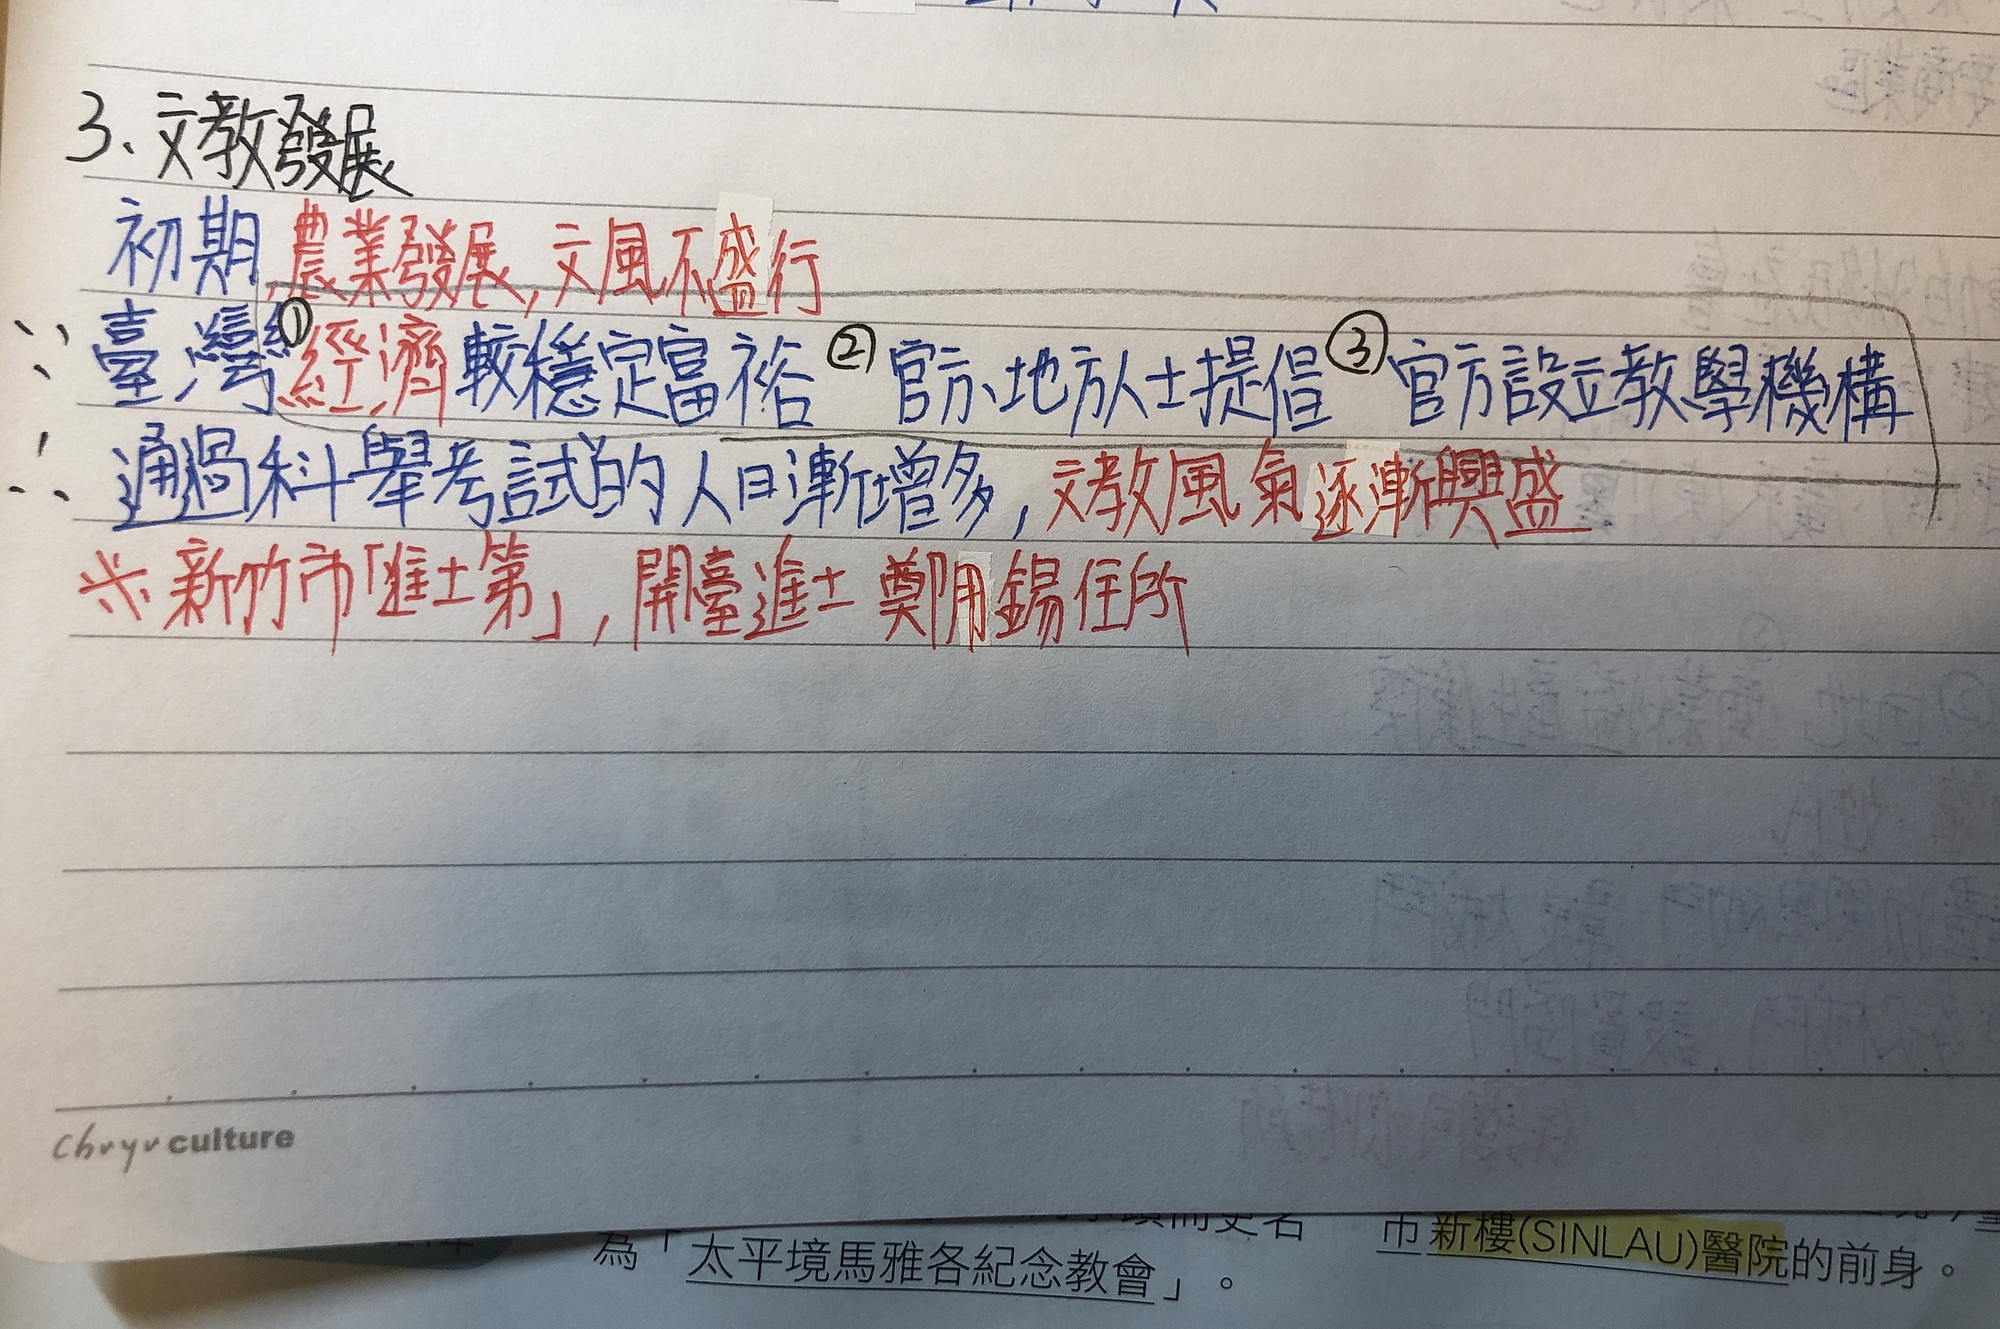 3、文教發展
初期,農業發展,文風不盛行
∵臺灣①經濟較穩定富裕②官方、地方人士提倡③官方設立教學機構
∴通過科舉考試的人日漸增多,文教風氣逐漸興盛
※新竹市「進士第」,開臺進士鄭用錫住所
chuyu culture
而更名
為「太平境馬雅各紀念教會」。
市新樓(SINLAU)醫院的前身。